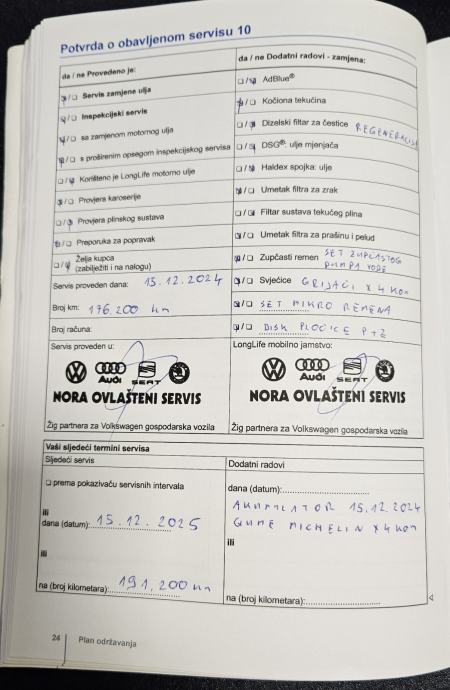 Potvrda o obavljenom servisu 10
da / ne Provedeno je:
Servis zamjene ulja
Inspekcijski servis
sa zamjenom motornog ulja
s proširenim opsegom inspekcijskog servisa
Korišteno je LongLife motorno ulje
Provjera karoserije
Provjera plinskog sustava
Preporuka za popravak
Želja kupca
(zabilježiti i na nalogu)
Servis proveden dana: 15.12.2024
Broj km: 176.200 km
Broj računa:
da / ne Dodatni radovi - zamjena:
AdBlue®
Kočiona tekućina
Dizelski filtar za čestice REGENERACIJA
DSG®: ulje mjenjača
Haldex spojka: ulje
Umetak filtra za zrak
Filtar sustava tekućeg plina
Umetak filtra za prašinu i pelud
Zupčasti remen SET ZUPČASTOG
PUMPA VODE
Svjećice GRIJAČI x 4 KOM
SET MIKRO REMENA
DISK PLOČICE P+Z
Servis proveden u:
Audi
SEAT
NORA OVLAŠTENI SERVIS
Žig partnera za Volkswagen gospodarska vozila
LongLife mobilno jamstvo:
Audi
SEAT
NORA OVLAŠTENI SERVIS
Žig partnera za Volkswagen gospodarska vozila
Vaši sljedeći termini servisa
Sljedeći servis
prema pokazivaču servisnih intervala
ili
dana (datum): 15.12.2025
ili
na (broj kilometara): 191.200 km
Dodatni radovi
dana (datum):
AKUMLATOR 15.12.2024
GUME MICHELIN x 4 KOM
ili
na (broj kilometara):
24
Plan održavanja